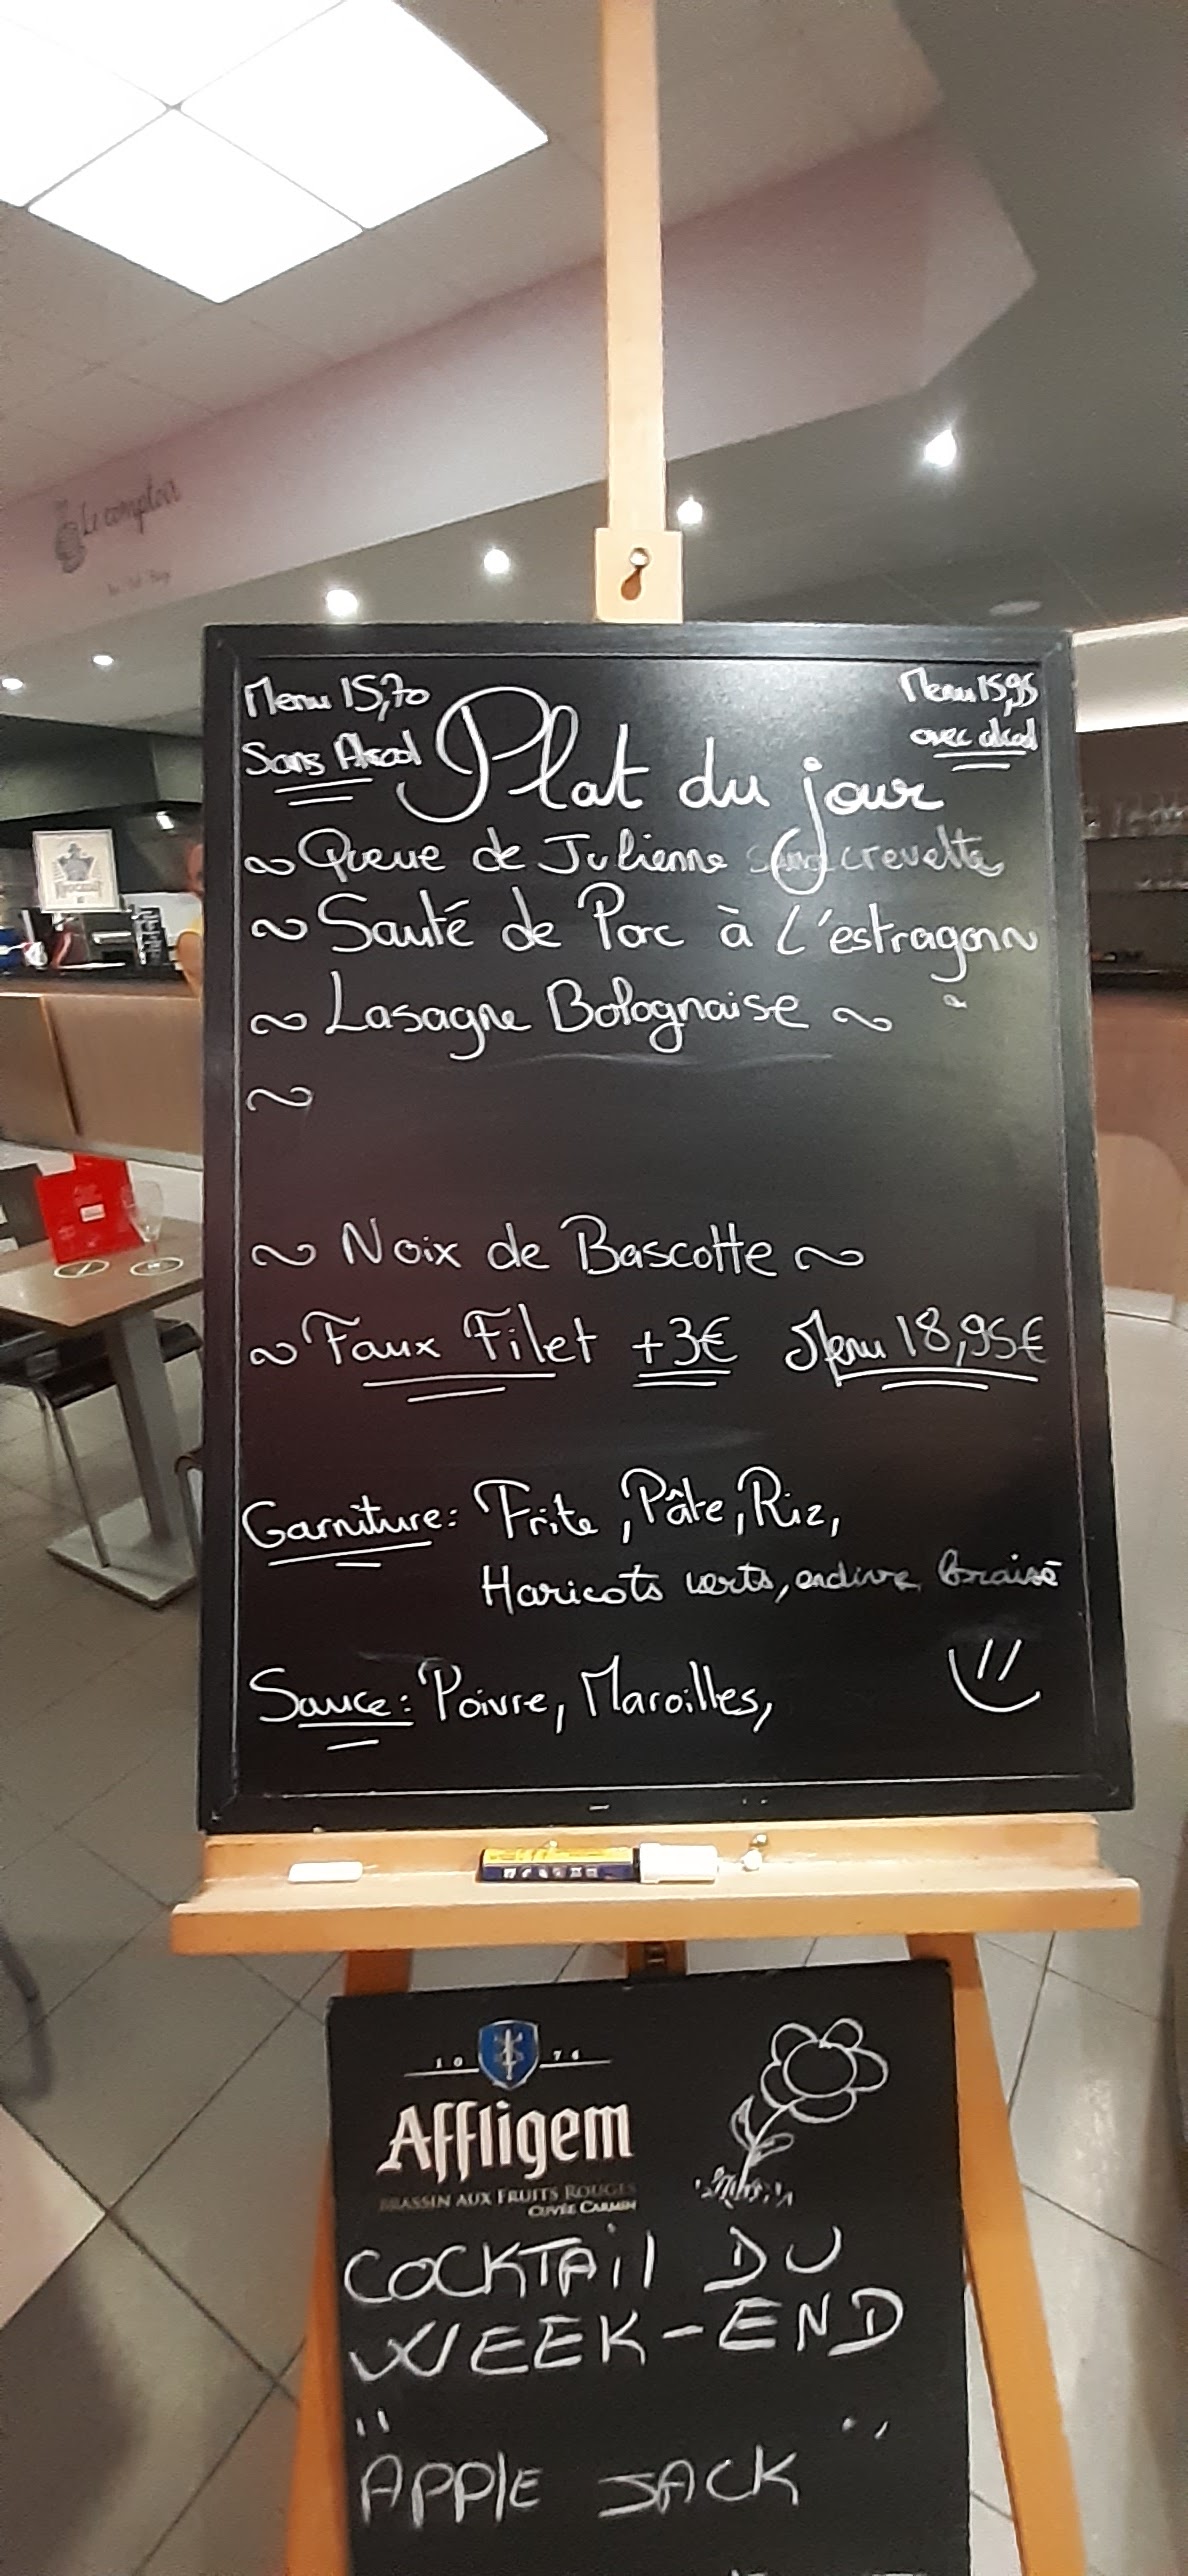 Le comptoir
Menu 15,70
Sans Alcool
Menu 15,95
avec alcool
Plat du jour
~ Queue de Julienne sauce crevette
~ Sauté de Porc à l'estragon ~
~ Lasagne Bolognaise ~
~
~ Noix de Bascotte ~
~ Faux Filet +3€ Menu 18,95€
Garniture: Frite, Pâte, Riz,
Haricots verts, endive braisé
Sauce: Poivre, Maroilles,
1074
Affligem
BRASSIN AUX FRUITS ROUGES
CUVÉE CARMIN
COCKTAIL DU
WEEK-END
"
"
APPLE JACK